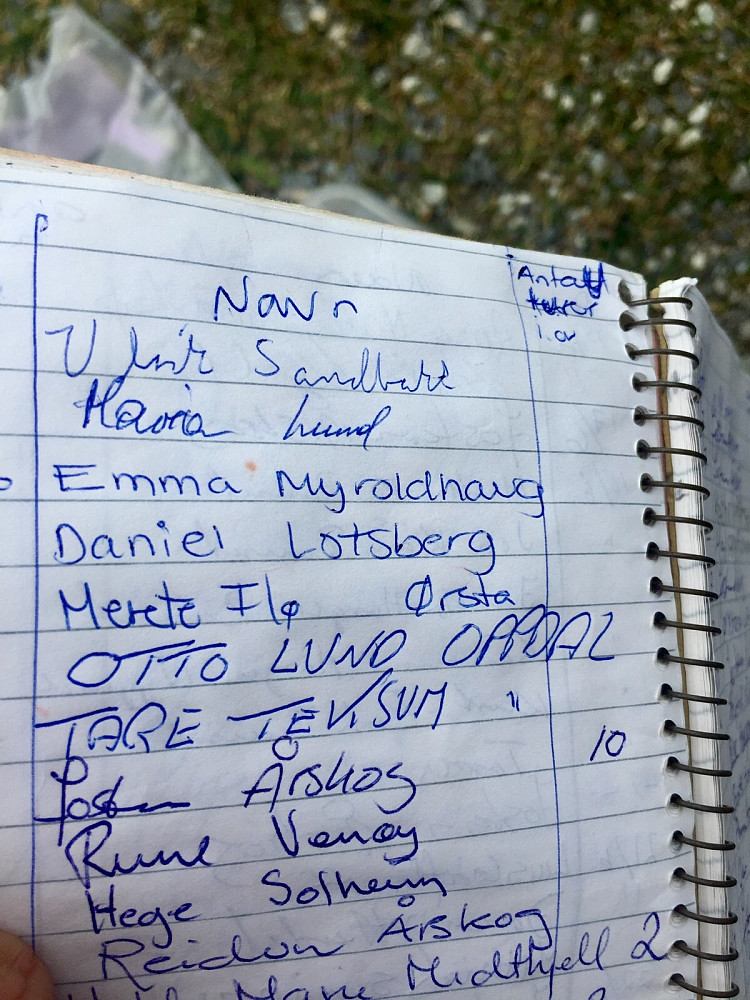 Navn
Antall
turer
i år
Sandbakk
Maria Lund
Emma Myroldhaug
Daniel Lotsberg
Merete Ilø Ørsta
OTTO LUND OPPDAL
TARE "
10
Årskog
Rune
Hege Solheim
Reidun Årskog
Midthjell 2